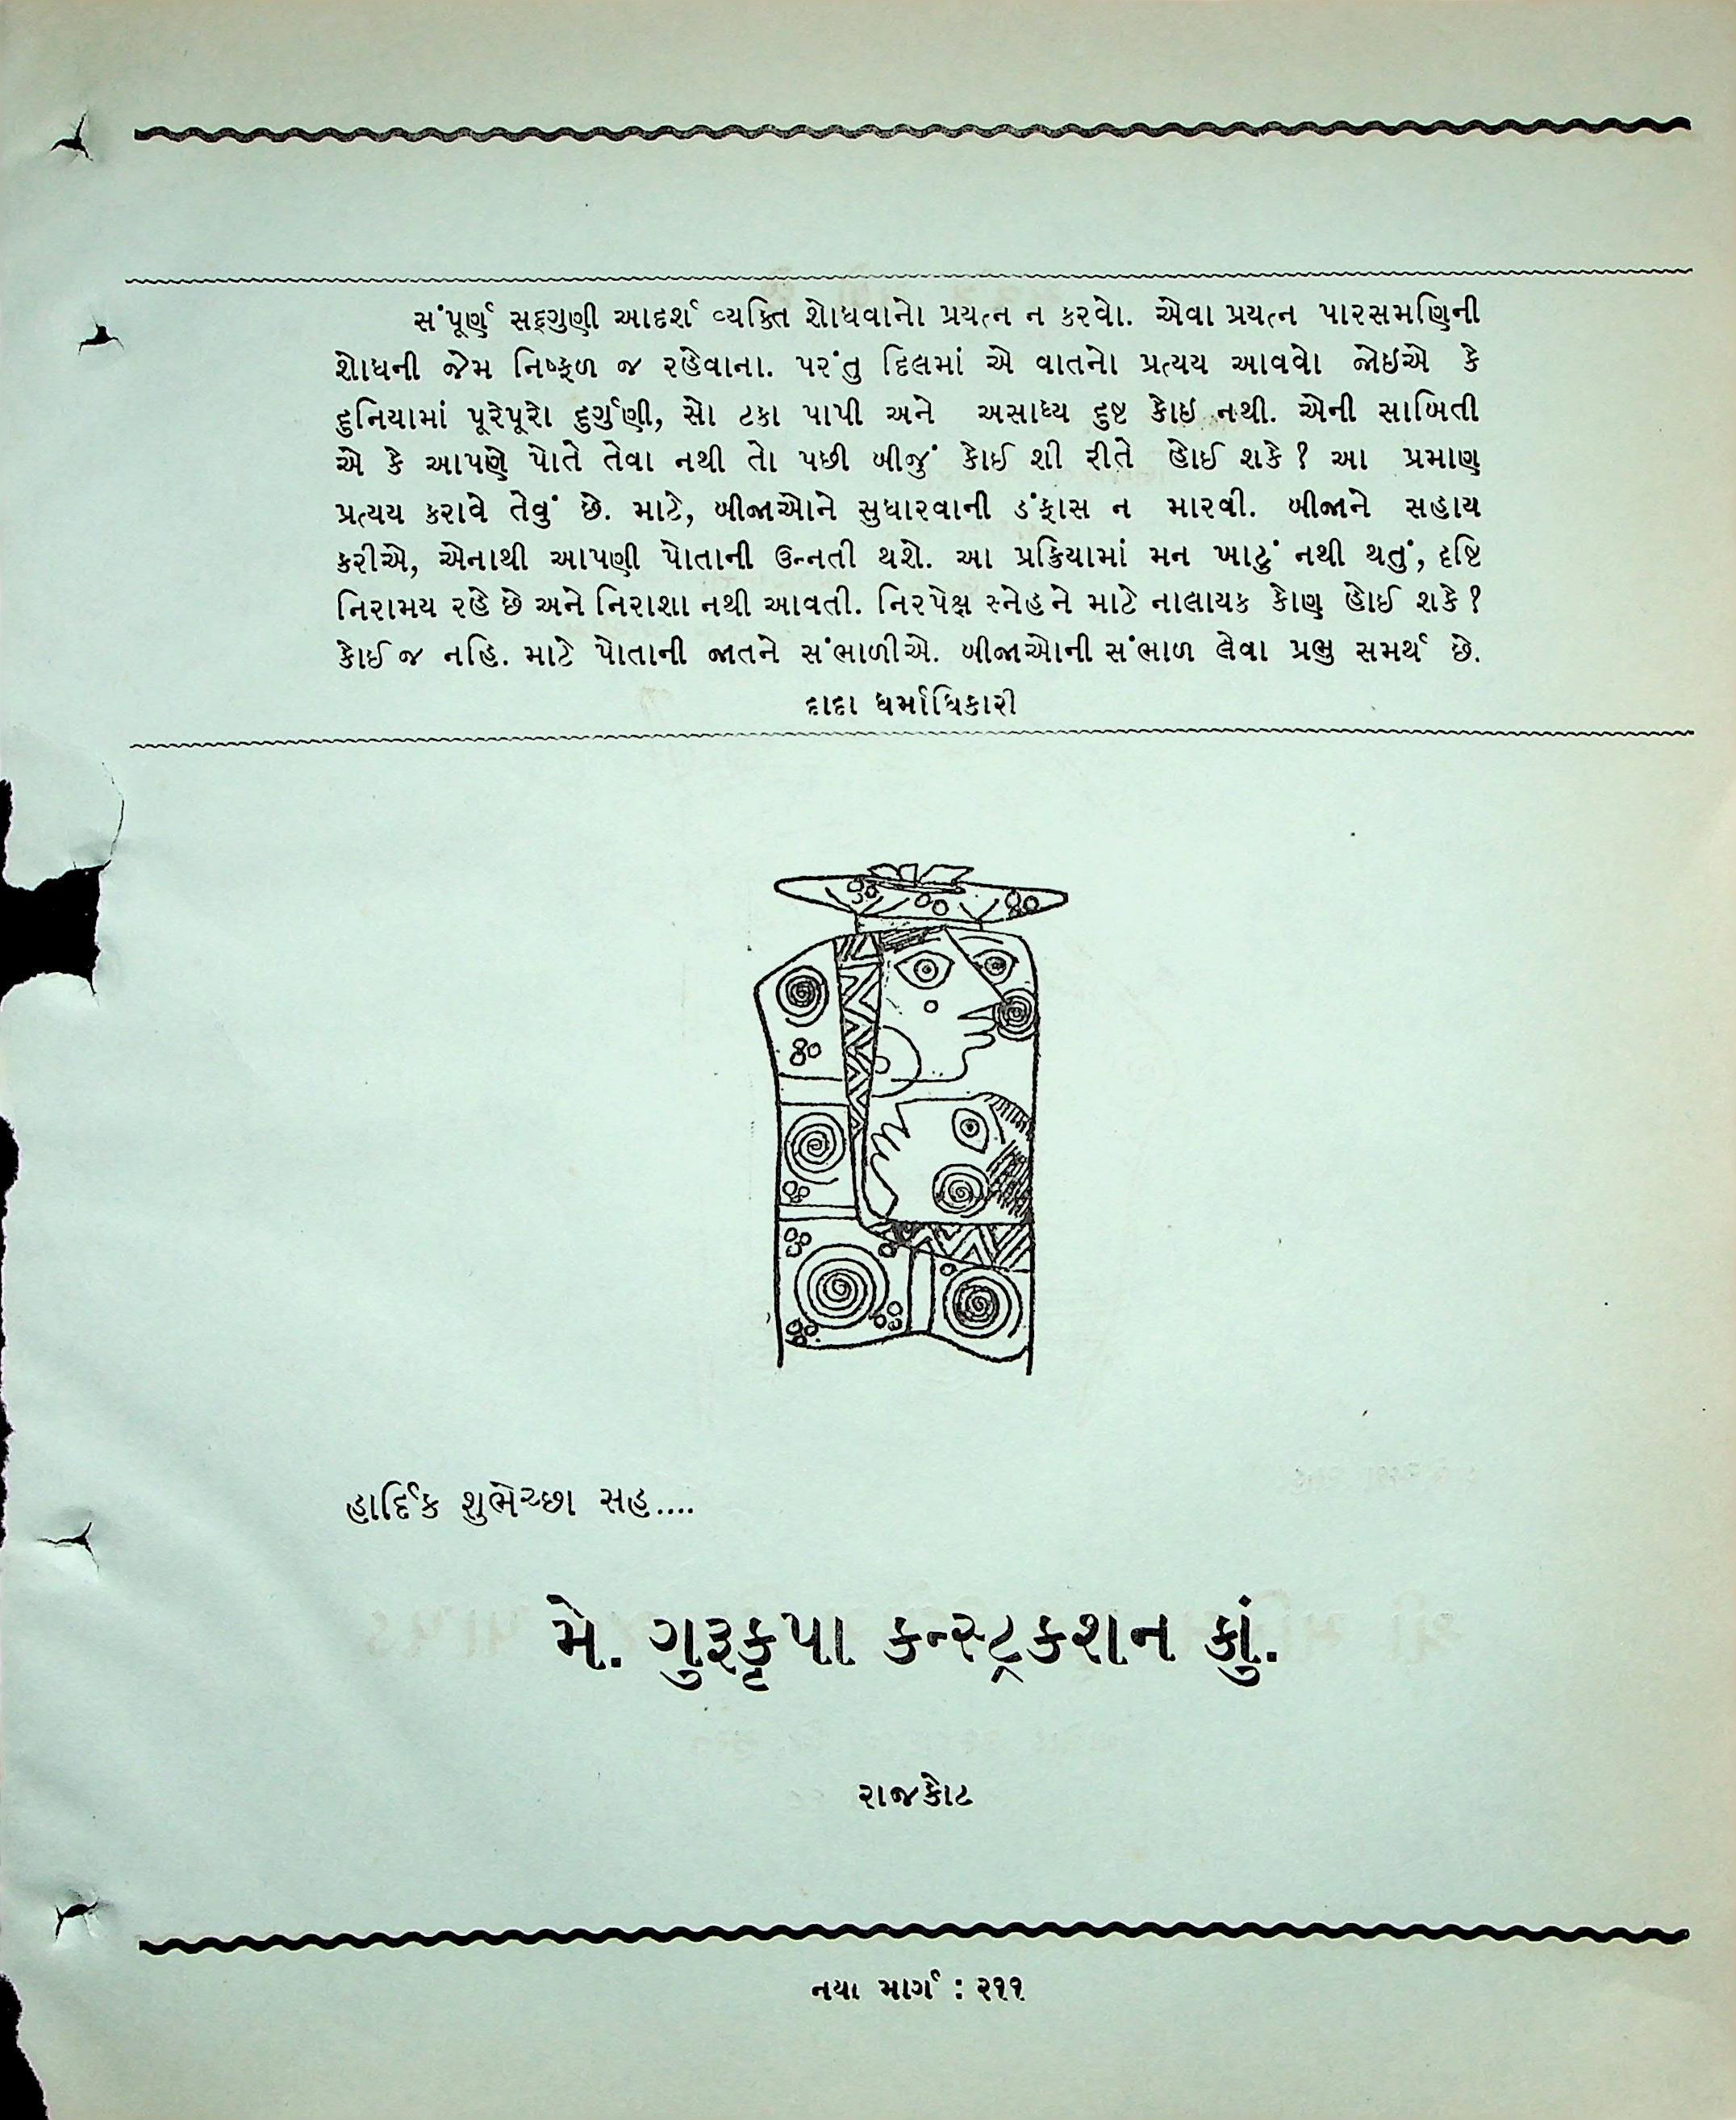 સંપૂર્ણ સદ્ગુણી આદર્શ વ્યક્તિ શોધવાનો પ્રયત્ન ન કરવો. એવા પ્રયત્ન પારસમણિની
શોધની જેમ નિષ્ફળ જ રહેવાના. પરંતુ દિલમાં એ વાતનો પ્રત્યય આવવો જોઇએ કે
દુનિયામાં પૂરેપૂરો દુર્ગુણી, સો ટકા પાપી અને અસાધ્ય દુષ્ટ કોઇ નથી. એની સાબિતી
એ કે આપણે પોતે તેવા નથી તો પછી બીજું કોઈ શી રીતે હોઈ શકે ? આ પ્રમાણ
પ્રત્યય કરાવે તેવું છે. માટે, બીજાઓને સુધારવાની ડંફાસ ન મારવી. બીજાને સહાય
કરીએ, એનાથી આપણી પોતાની ઉન્નતી થશે. આ પ્રક્રિયામાં મન ખાટું નથી થતું, દૃષ્ટિ
નિરામય રહે છે અને નિરાશા નથી આવતી. નિરપેક્ષ સ્નેહને માટે નાલાયક કોણ હોઈ શકે ?
કોઈ જ નહિ. માટે પોતાની જાતને સંભાળીએ. બીજાઓની સંભાળ લેવા પ્રભુ સમર્થ છે.
દાદા ધર્માધિકારી
હાર્દિક શુભેચ્છા સહ....
મે. ગુરૂકૃપા કન્સ્ટ્રકશન કું.
રાજકોટ
નયા માર્ગ : ૨૧૧